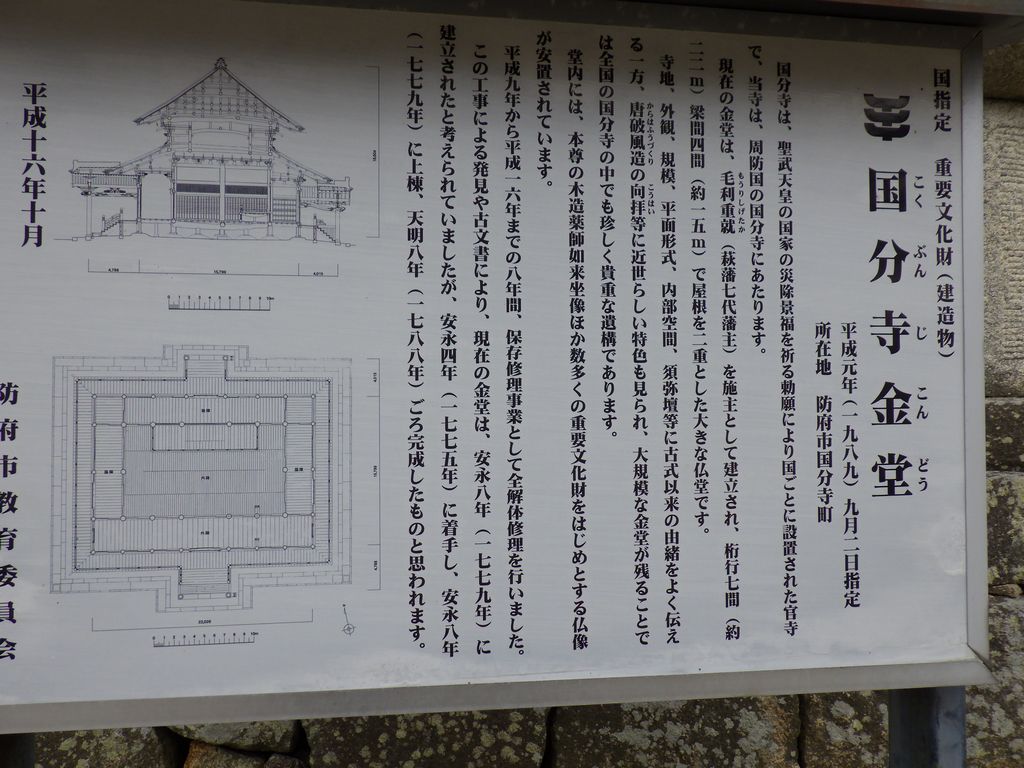 国指定 重要文化財(建造物)
国分寺金堂
こくぶんじこんどう
平成元年(一九八九)九月二日指定
所在地 防府市国分寺町
国分寺は、聖武天皇の国家の災除景福を祈る勅願により国ごとに設置された官寺
で、当寺は、周防国の国分寺にあたります。
現在の金堂は、毛利重就(萩藩七代藩主)を施主として建立され、桁行七間(約
もうりしげたか
二二m)梁間四間(約一五m)で屋根を二重とした大きな仏堂です。
寺地、外観、規模、平面形式、内部空間、須弥壇等に古式以来の由緒をよく伝え
る一方、唐破風造の向拝等に近世らしい特色も見られ、大規模な金堂が残ることで
からはふうづくり こうはい
は全国の国分寺の中でも珍しく貴重な遺構であります。
堂内には、本尊の木造薬師如来坐像ほか数多くの重要文化財をはじめとする仏像
が安置されています。
平成九年から平成一六年までの八年間、保存修理事業として全解体修理を行いました。
この工事による発見や古文書により、現在の金堂は、安永八年(一七七九年)に
建立されたと考えられていましたが、安永四年(一七七五年)に着手し、安永八年
(一七七九年)に上棟、天明八年(一七八八年)ごろ完成したものと思われます。
平成十六年十月
防府市教育委員会